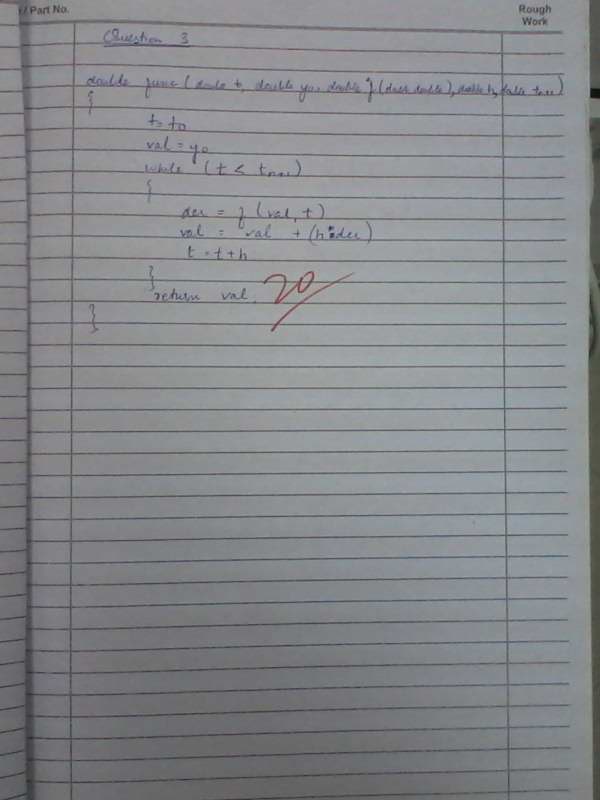 / Part No.
Rough
Work
Question 3
double func (double t, double y0, double f (double, double), double h, double tmax)
{
t = t0
val = y0
while (t <
{
der = f (val, t)
val = val + (h * der)
t = t + h
}
return val.
20
}